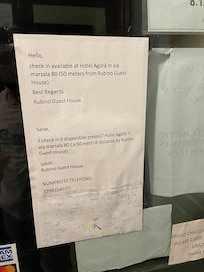 Hello,
check in available at Hotel Agorà in via
marsala 80 (50 meters from Rubino Guest
House)
Best Regards
Rubino Guest House
Salve,
il check in è disponibile presso l' Hotel Agorà in
via marsala 80 ( a 50 metri di distanza da Rubino
Guest House)
Saluti
Rubino Guest House
NUMERO DI TELEFONO
8.1
AM
EX